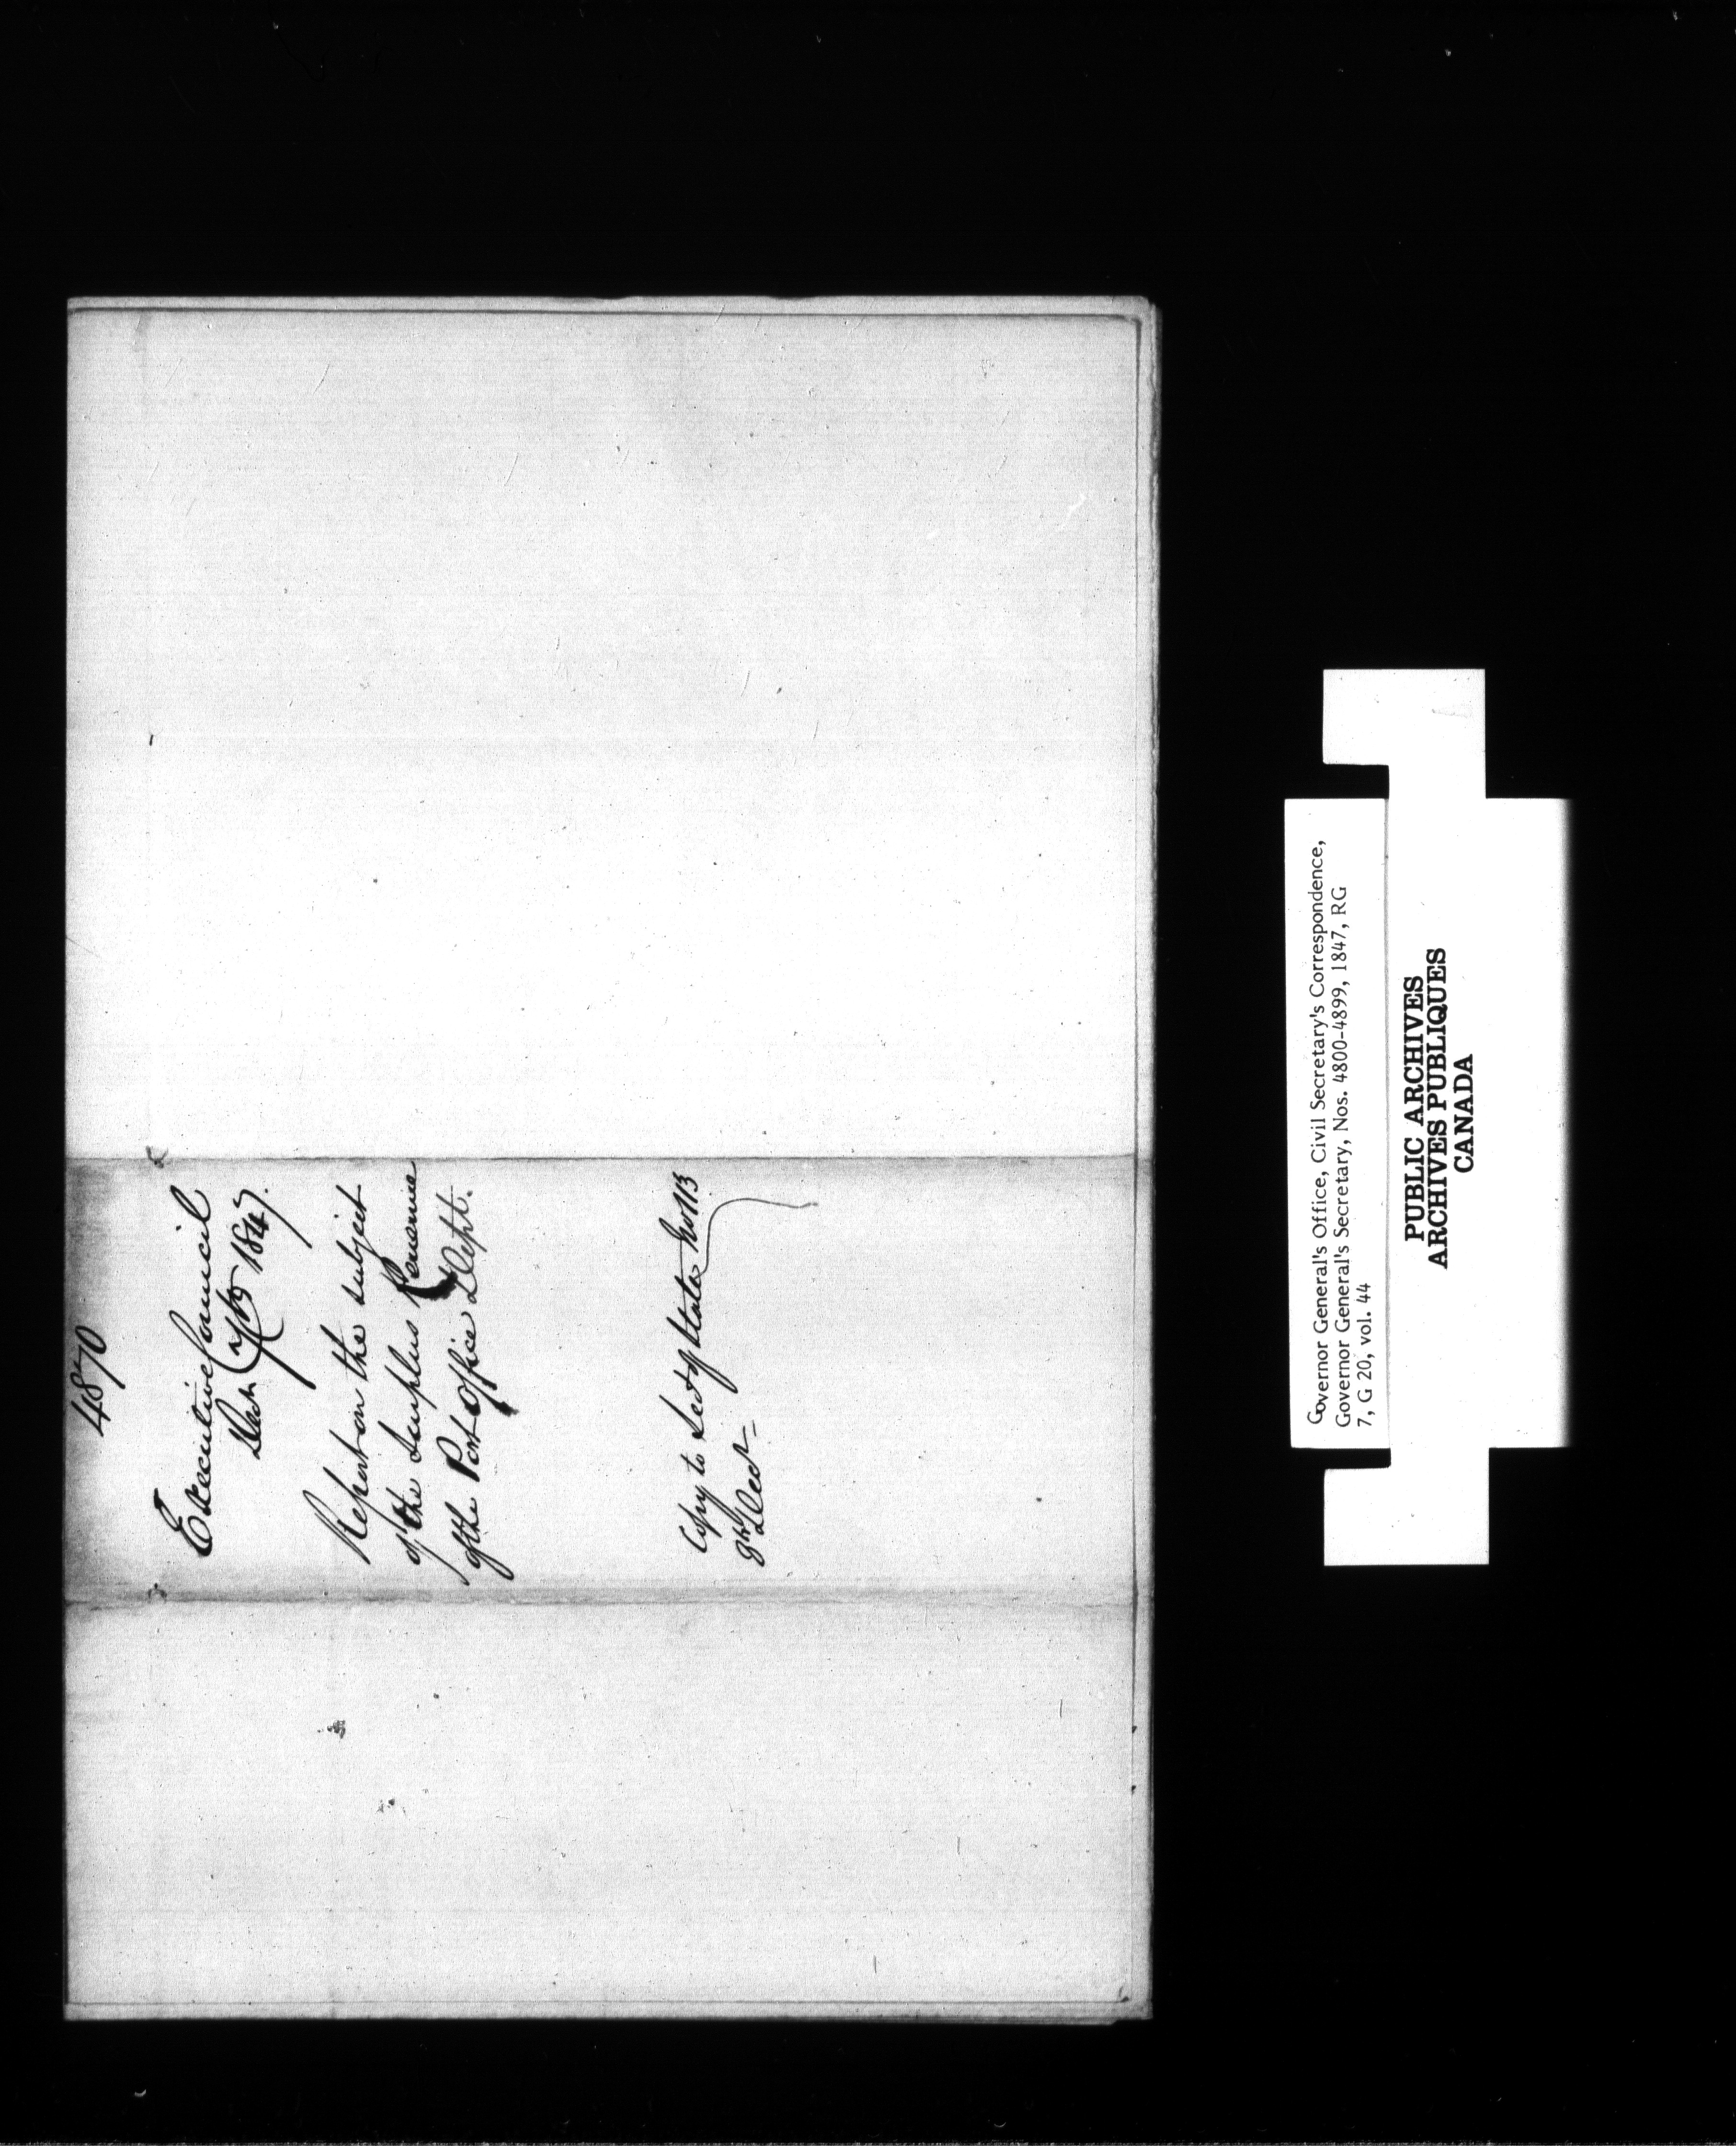 4870
Executive Council
1847.
Report on the subject
of the Surplus Revenue
of the Post Office Dept.
Copy to Sec of State No 113
8th Decr
Governor General's Office, Civil Secretary's Correspondence,
Governor General's Secretary, Nos. 4800-4899, 1847, RG
7, G 20, vol. 44
PUBLIC ARCHIVES
ARCHIVES PUBLIQUES
CANADA